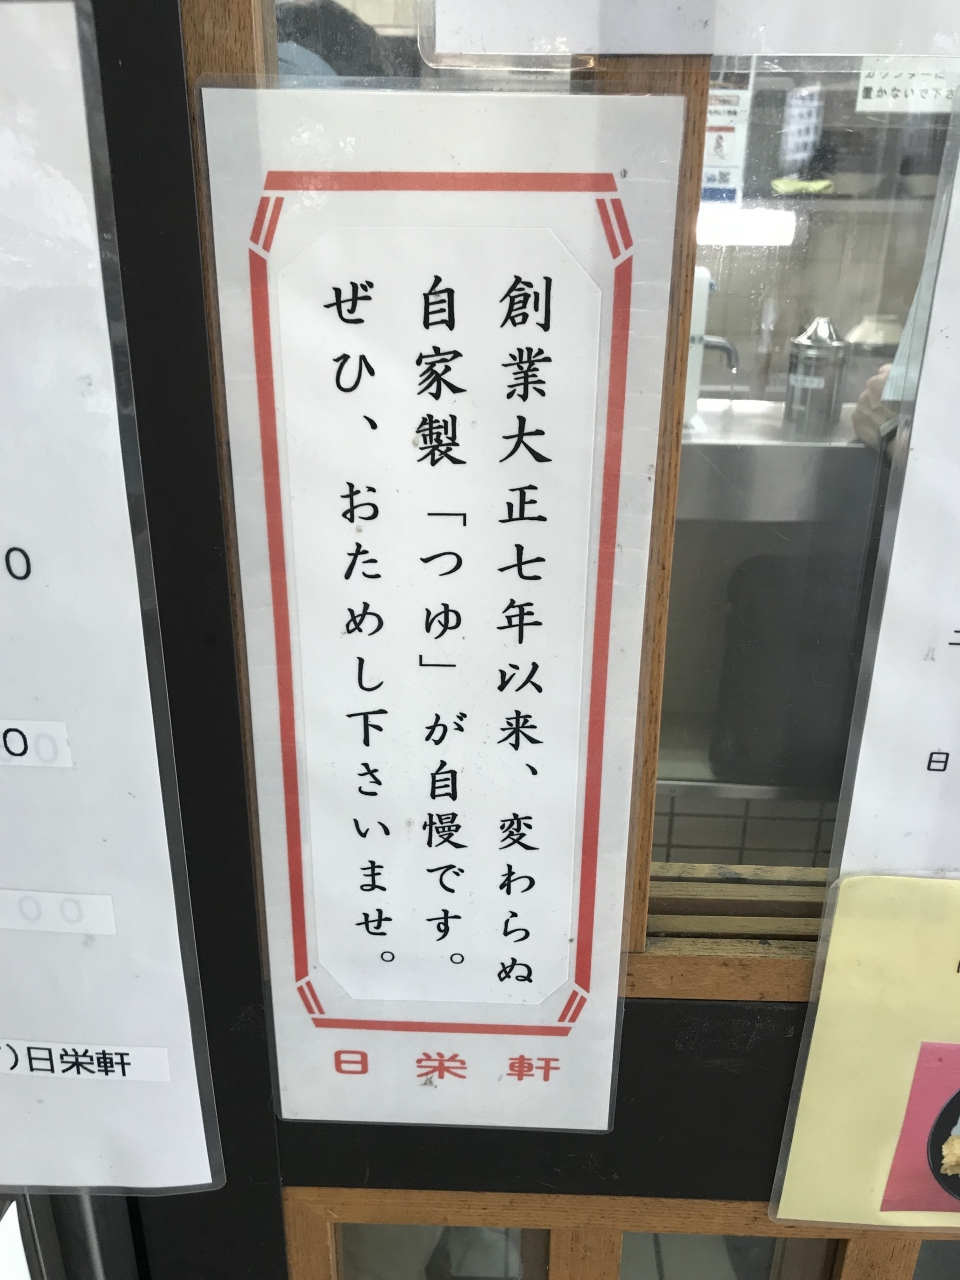 創業大正七年以来、変わらぬ
自家製「つゆ」が自慢です。
ぜひ、おためし下さいませ。
日栄軒
0
00
00
)日栄軒
日